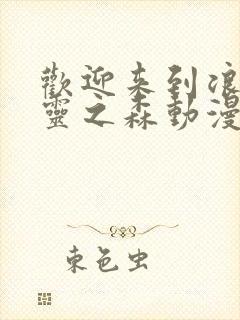 歡迎来到浪
靈之森動漫
束色虫